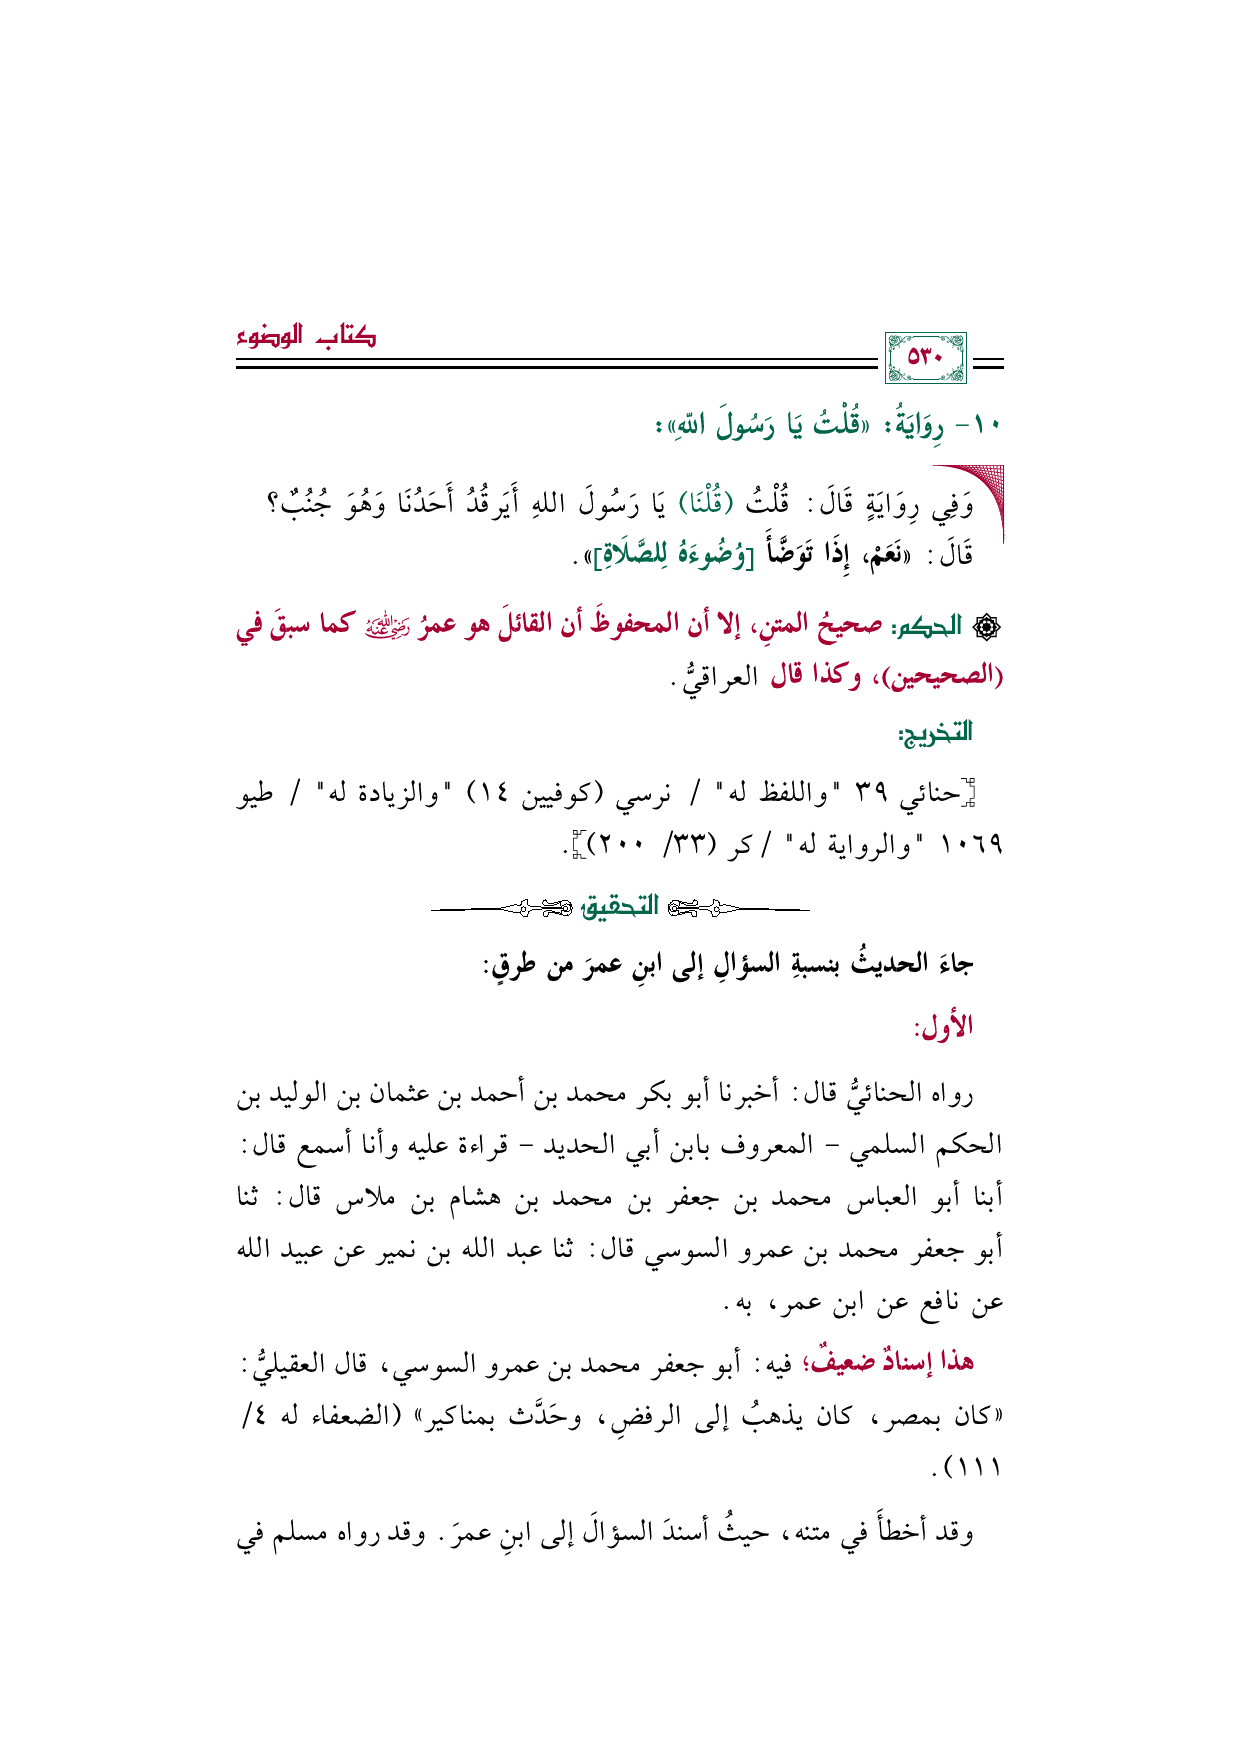 كتاب الوضوء
٥٣٠
١٠- رِوَايَةُ: «قُلْتُ يَا رَسُولَ اللهِ»:
وَفِي رِوَايَةٍ قَالَ: قُلْتُ (قُلْنَا) يَا رَسُولَ اللهِ أَيَرقُدُ أَحَدُنَا وَهُوَ جُنُبٌ؟
قَالَ: «نَعَمْ، إِذَا تَوَضَّأَ [وُضُوءَهُ لِلصَّلَاةِ]».
الحكم: صحيحُ المتنِ، إلا أن المحفوظَ أن القائلَ هو عمرُ رضي الله عنه كما سبقَ في
(الصحيحين)، وكذا قال العراقيُّ.
التخريج:
[حنائي ٣٩ "واللفظ له" / نرسي (كوفيين ١٤) "والزيادة له" / طيو
١٠٦٩ "والرواية له" / كر (٣٣/ ٢٠٠)].
التحقيق
جاءَ الحديثُ بنسبةِ السؤالِ إلى ابنِ عمرَ من طرقٍ:
الأول:
رواه الحنائيُّ قال: أخبرنا أبو بكر محمد بن أحمد بن عثمان بن الوليد بن
الحكم السلمي - المعروف بابن أبي الحديد - قراءة عليه وأنا أسمع قال:
أبنا أبو العباس محمد بن جعفر بن محمد بن هشام بن ملاس قال: ثنا
أبو جعفر محمد بن عمرو السوسي قال: ثنا عبد الله بن نمير عن عبيد الله
عن نافع عن ابن عمر، به.
هذا إسنادٌ ضعيفٌ؛ فيه: أبو جعفر محمد بن عمرو السوسي، قال العقيليُّ:
«كان بمصر، كان يذهبُ إلى الرفضِ، وحَدَّث بمناكير» (الضعفاء له ٤/
١١١).
وقد أخطأَ في متنه، حيثُ أسندَ السؤالَ إلى ابنِ عمرَ. وقد رواه مسلم في